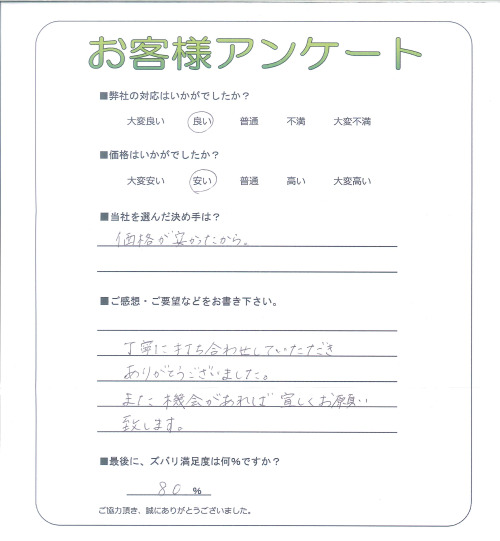 お客様アンケート
■弊社の対応はいかがでしたか？
大変良い 良い 普通 不満 大変不満
■価格はいかがでしたか？
大変安い 安い 普通 高い 大変高い
■当社を選んだ決め手は？
価格が安かったから。
■ご感想・ご要望などをお書き下さい。
丁寧に打ち合わせしていただき
ありがとうございました。
また機会があれば宜しくお願い
致します。
■最後に、ズバリ満足度は何%ですか？
80 %
ご協力頂き、誠にありがとうございました。